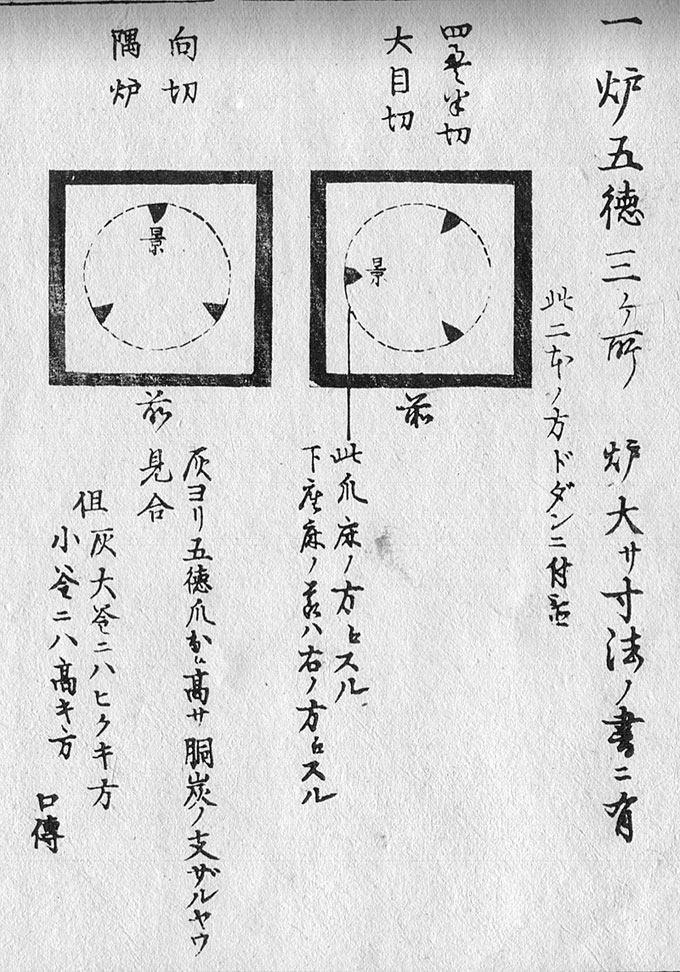 一 炉五徳三ヶ所 炉大サ寸法ノ書ニ有
此二本ノ方ドダンニ付
四畳半切
大目切
景
前
此爪床ノ方ヒスル
下座床ノ ハ右ノ方ヒスル
向切
隅炉
景
前
灰ヨリ五徳爪 高サ胴炭ノ支ザルヤウ
見合
但灰大釜ニハヒクキ方
小釜ニハ高キ方
口傳